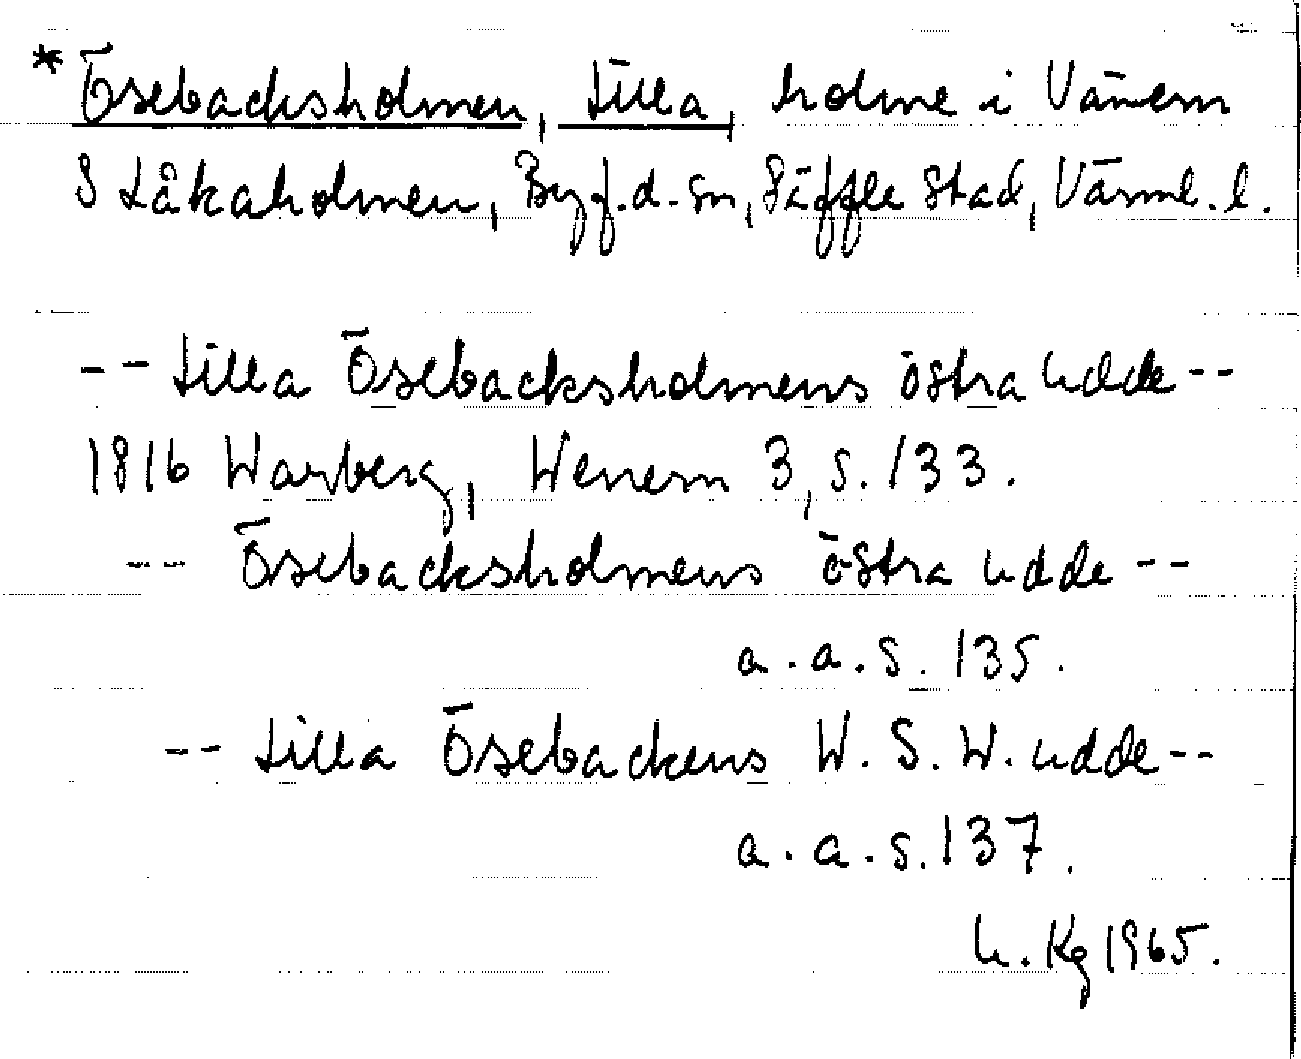 * Ösebacksholmen, Lilla, holme i Vänern
S Låkaholmen, By f.d. sn, Säffle stad, Värml. l.
-- Lilla Ösebacksholmens östra udde --
1816 Warberg, Wenern 3, s. 133.
-- Ösebacksholmens östra udde --
a. a. s. 135.
-- Lilla Ösebackens W. S. W. udde --
a. a. s. 137.
Kg 1965.